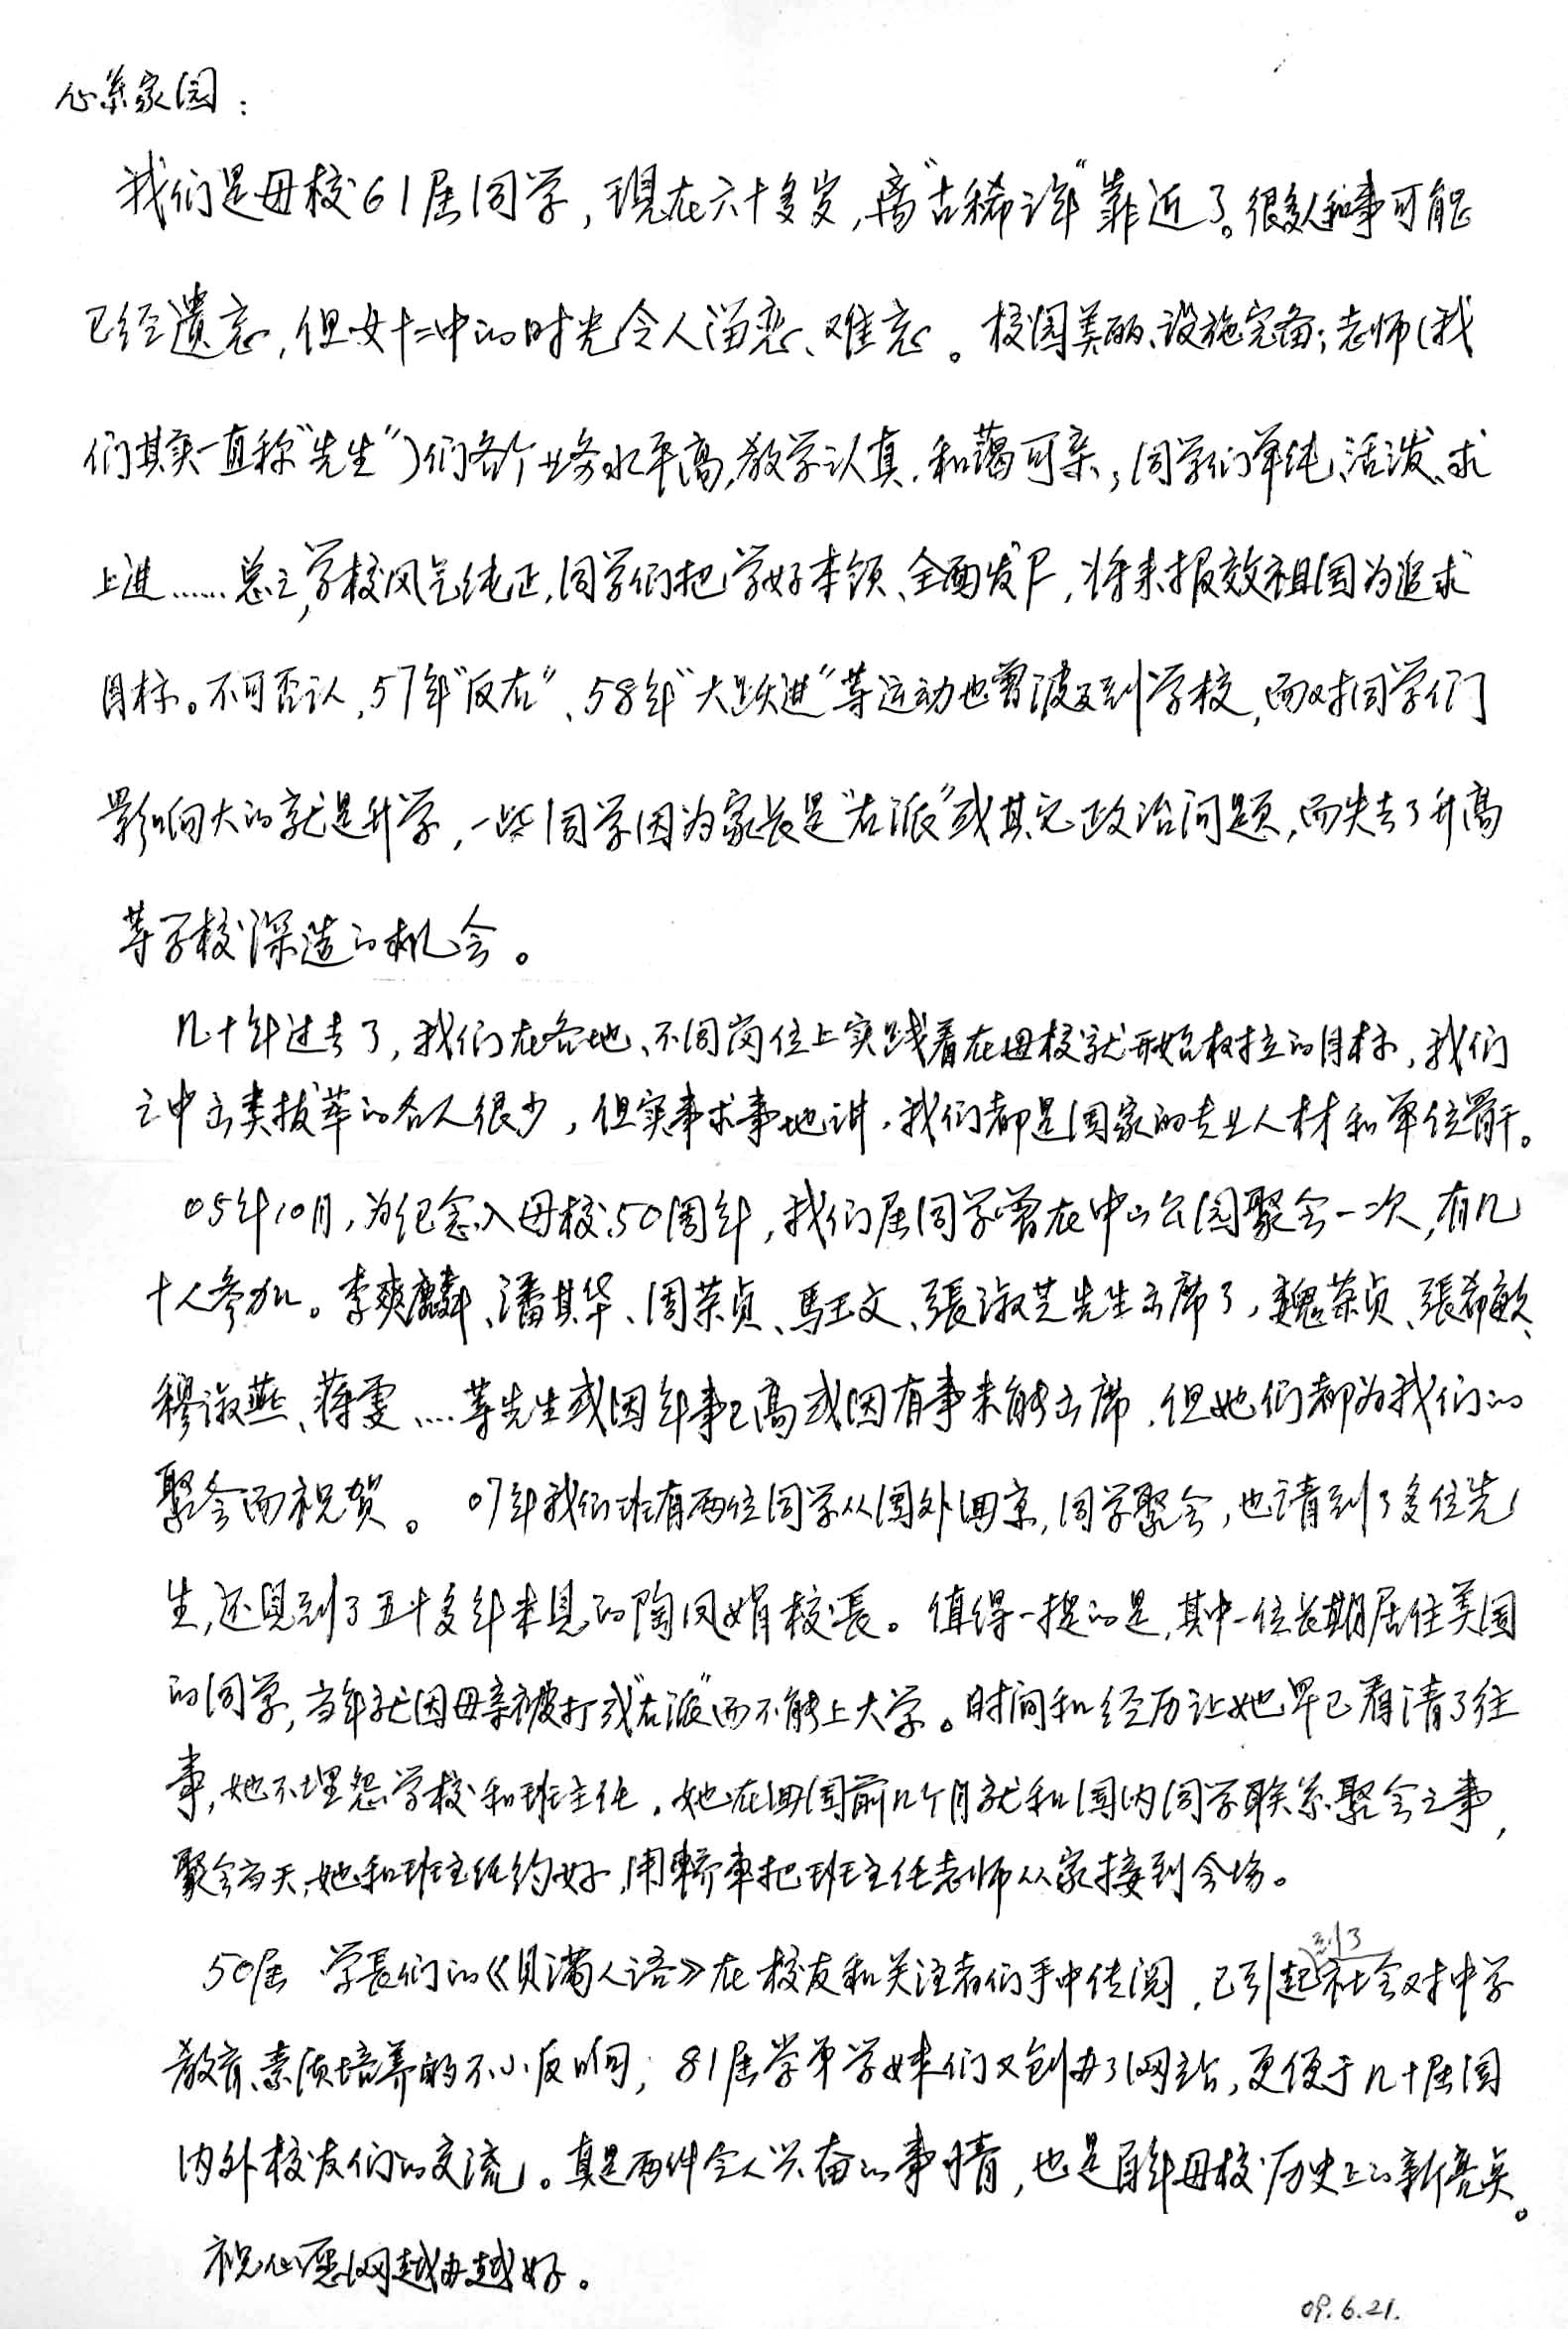 心系家园：
我们是母校61届同学，现在六十多岁，离“古稀之年”靠近了。很多人和事可能
已经遗忘，但女十二中的时光令人留恋、难忘。校园美丽、设施完备；老师（我
们其实一直称“先生”）们各个业务水平高，教学认真，和蔼可亲；同学们单纯、活泼、求
上进……总之，学校风气纯正，同学们把学好本领、全面发展，将来报效祖国为追求
目标。不可否认，57年“反右”、58年“大跃进”等运动也曾波及到学校，而对同学们
影响大的就是升学，一些同学因为家长是“右派”或其它政治问题，而失去了升高
等学校深造的机会。
几十年过去了，我们在各地、不同岗位上实践着在母校就开始树立的目标，我们
之中出类拔萃的名人很少，但实事求事地讲，我们都是国家的专业人材和单位骨干。
05年10月，为纪念入母校50周年，我们届同学曾在中山公园聚会一次，有几
十人参加。李爽麟、潘其华、周荣贞、馬玉文、張淑芝先生出席了，魏荣贞、張希敏、
穆淑燕、蒋雯……等先生或因年事已高或因有事未能出席，但她们都为我们的
聚会而祝贺。 07年我们班有两位同学从国外回京，同学聚会，也请到了多位先
生，还见到了五十多年未见的陶凤娟校長。值得一提的是，其中一位长期居住美国
的同学，当年就因母亲被打成“右派”而不能上大学。时间和经历让她早已看清了往
事，她不埋怨学校和班主任。她在回国前几个月就和国内同学联系聚会之事，
聚会当天，她和班主任约好，用轿车把班主任老师从家接到会场。
50届 学長们的《贝满人语》在校友和关注者们手中传阅，已引起到了社会对中学
教育、素质培养的不小反响；81届学弟学妹们又创办了网站，更便于几十届国
内外校友们的交流。真是两件令人兴奋的事情，也是百年母校历史上的新亮点。
祝心愿网越办越好。
09.6.21.